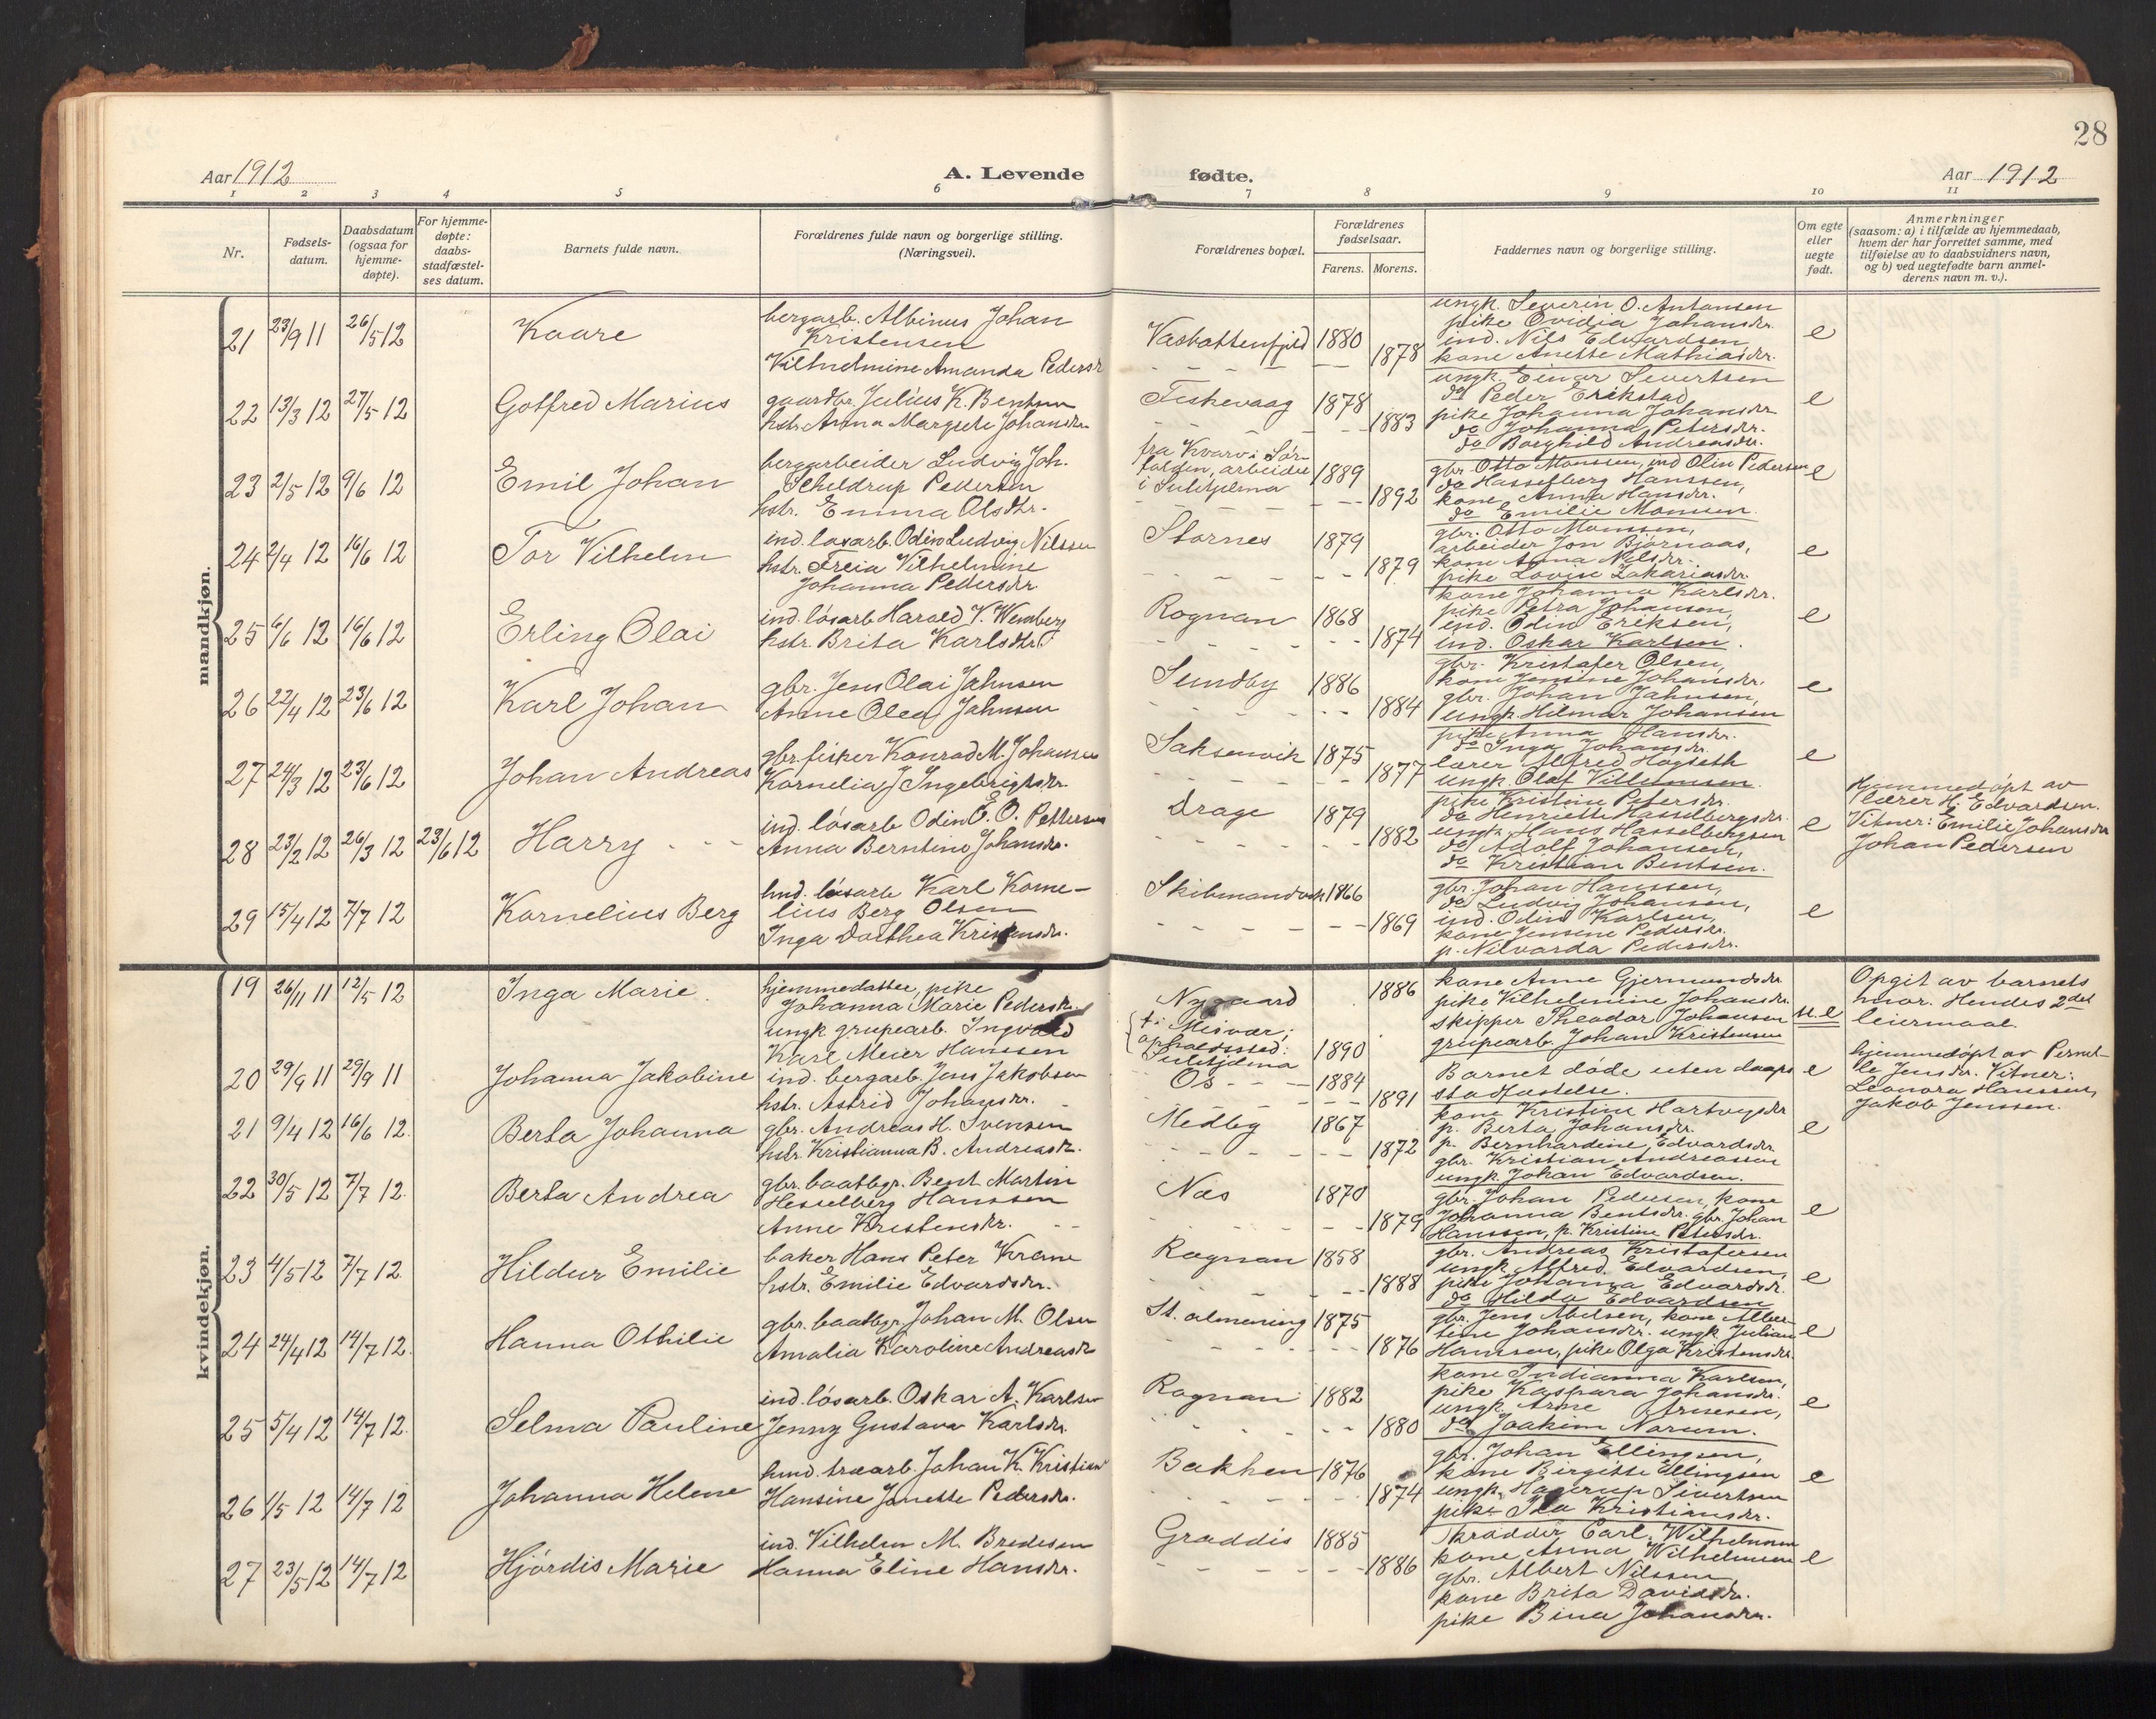 28
Aar 1912
A. Levende
fødte.
Aar 1912
1 2 3 4 5 6 7 8 9 10 11
Nr.
Fødsels-
datum.
Daabsdatum
(ogsaa for
hjemme-
døpte).
For hjemme-
døpte:
daabs-
stadfæstel-
ses datum.
Barnets fulde navn.
Forældrenes fulde navn og borgerlige stilling.
(Næringsvei).
Forældrenes bopæl.
Forældrenes
fødselsaar.
Farens. Morens.
Faddernes navn og borgerlige stilling.
Om egte
eller
uegte
født.
Anmerkninger
(saasom: a) i tilfælde av hjemmedaab,
hvem der har forrettet samme, med
tilføielse av to daabsvidners navn,
og b) ved uegtefødte barn anmel-
derens navn m. v.).
mandkjøn.
21 23/9 11 26/5 12 Kaare
bergarb. Albinus Johan
Kristensen
Vilhelmine Amanda Pedersdr
Vasbottenfjeld 1880 1878
ungk. Severin O. Antonsen
pike Ovidia Johansdr.
ind. Nils Edvardsen
kone Anette Mathiasdr.
e
22 13/3 12 27/5 12 Gotfred Marius
gaardbr. Julius K. Bentsen
hstr. Anna Margrete Johansdr.
Fiskevaag 1878 1883
ungk. Einar Severtsen
do Peder Erikstad
pike Johanna Johansdr.
do Johanna Petersdr.
do Borghild Andreasdtr.
e
23 2/5 12 9/6 12 Emil Johan
bergarbeider Ludvig Joh.
Scheldrup Pedersen
hstr. Emma Olsdtr.
fra Kvarv i Sør-
folden, arbeider
i Sulitjelma 1889 1892
gbr. Otto Monssen, ind Olin Pedersen
do Hasselberg Hanssen,
kone Anna Hansdr.
do Emilie Monsen.
e
24 2/4 12 16/6 12 Tor Vilhelm
ind. løsarb. Odin Ludvig Nilssen
hstr. Freia Vilhelmine
Johanna Pedersdr
Stornes 1879 1879
gbr. Otto Monssen,
arbeider Jon Bjørnaas,
kone Anna Nilsdr.
pike Lovise Zakariasdr.
e
25 6/6 12 16/6 12 Erling Olai
ind. løsarb Harald V. Wemberg
hstr. Brita Karlsdtr.
Rognan 1868 1874
kone Johanna Karlsdr.
pike Petra Johansen,
ind. Odin Eriksen,
ind. Oskar Karlsen.
e
26 22/4 12 23/6 12 Karl Johan
gbr. Jens Olai Jahnsen
Anne Olea Jahnsen
Sundby 1886 1884
gbr. Kristofer Olsen,
kone Jensine Johansdr.
gbr. Johan Jahnsen,
ungk. Hilmar Johansen
e
27 24/3 12 23/6 12 Johan Andreas
gbr. fisker Konrad M. Johansen
Kornelia J Ingebrigtsdr.
Saksenvik 1875 1877
pike Anna Hansdr.
do Inga Johansdr.
lærer Alfred Hogseth
ungk. Olaf Villumsen.
e
28 23/2 12 26/3 12 23/6 12 Harry
ind. løsarb Odin E. O. Pettersen
Anna Berntine Johansdr.
Drage 1879 1882
pike Kristine Petersdr.
do Henriette Hasselbergsdr.
ungk. Hans Hasselbergsen
do Adolf Johansen,
do Kristian Bentsen.
e
Hjemmedøpt av
lærer H. Edvardsen.
Vitner: Emilie Johansdr
Johan Pedersen
29 15/4 12 7/7 12 Kornelius Berg
hmd. løsarb Karl Korne-
lius Berg Olsen
Inga Dorthea Kristensdr.
1866 1869
gbr. Johan Hanssen,
do Ludvig Johansen,
ind. Odin Karlsen,
kone Jensine Pedersdr.
p. Nilvarda Pedersdr.
e
kvindekjøn.
19 26/11 11 12/5 12 Inga Marie.
hjemmedatter, pike
Johanna Marie Pedersdr.
ungk. grupearb. Ingvald
Karl Meier Hanssen
Nygaard
ti Misvær;
opholdssted:
Sulitjelma 1886 1890
kone Anne Gjermundsdr
pike Vilhelmine Johansdr.
skipper Theodor Johansen
grupearb. Johan Kristensen
u.e
Opgit av barnets
mor. Hendes 2det
leiermaal.
20 29/9 11 29/9 11 Johanna Jakobine
ind. bergarb. Jens Jakobsen
hstr. Astrid Johansdr.
Os 1884 1891
Barnet døde uten daaps
stadfæstelse.
e
hjemmedøpt av Pernil-
le Jensdr. Vitner:
Leonora Hanssen,
Jakob Jenssen.
21 9/4 12 16/6 12 Berta Johanna
gbr. Andreas H. Svensen
hstr. Kristianna B. Andreasdr.
Medby 1867 1872
kone Kristine Hartvigsdr
p. Berta Johansdr.
p. Bernhardine Edvardsdr.
gbr. Kristian Andreassen
ungk. Johan Edvardsen.
e
22 30/5 12 7/7 12 Berta Andrea
gbr. baatbgr. Bent Martin
Hesselberg Hanssen
Anne Kristensdr.
Næs 1870 1879
gbr. Johan Pedersen, kone
Johanna Bentsdr. gbr. Johan
Hanssen, p. Kristine Petersdr.
e
23 4/5 12 7/7 12 Hildur Emilie
baker Hans Peter Krane
hstr. Emilie Edvardsdr.
Rognan 1858 1888
gbr. Andreas Kristofersen
ungk. Alfred Edvardsen,
pike Johanna Edvardsdr.
do Hilda Edvardsen
e
24 24/4 12 14/7 12 Hanna Othilie
gbr. baatbgr. Johan M. Olsen
Amalia Karoline Andreasdr
St. almening 1875 1876
gbr. Jens Abelsen, kone Alber-
tine Johansdr. ungk Julian
Hanssen, pike Olga Kristensdr.
e
25 5/4 12 14/7 12 Selma Pauline
ind. løsarb. Oskar A. Karlsen
Jenny Gustava Karlsdr.
Rognan 1882 1880
kone Indianna Karlsen,
pike Kaspara Johansdr.
ungk. Arne Arnesen,
do Joakim Norum.
e
26 1/5 12 14/7 12 Johanna Helene
hmd. træarb. Johan K. Kristian
Hansine Janette Pedersdr.
Bakken 1876 1874
gbr. Johan Ellingsen,
kone Birgitte Ellingsen
ungk. Hagerup Sivertsen
pike Ida Kristiansdr.
e
27 23/5 12 14/7 12 Hjørdis Marie
ind. Vilhelm M. Bredesen
Hanna Eline Hansdr.
Graddis 1885 1886
skrædder Carl Wilhelmsen
kone Anna Wilhelmsen
gbr. Albert Nilssen
kone Brita Davidsdr.
pike Bina Johansdr.
e